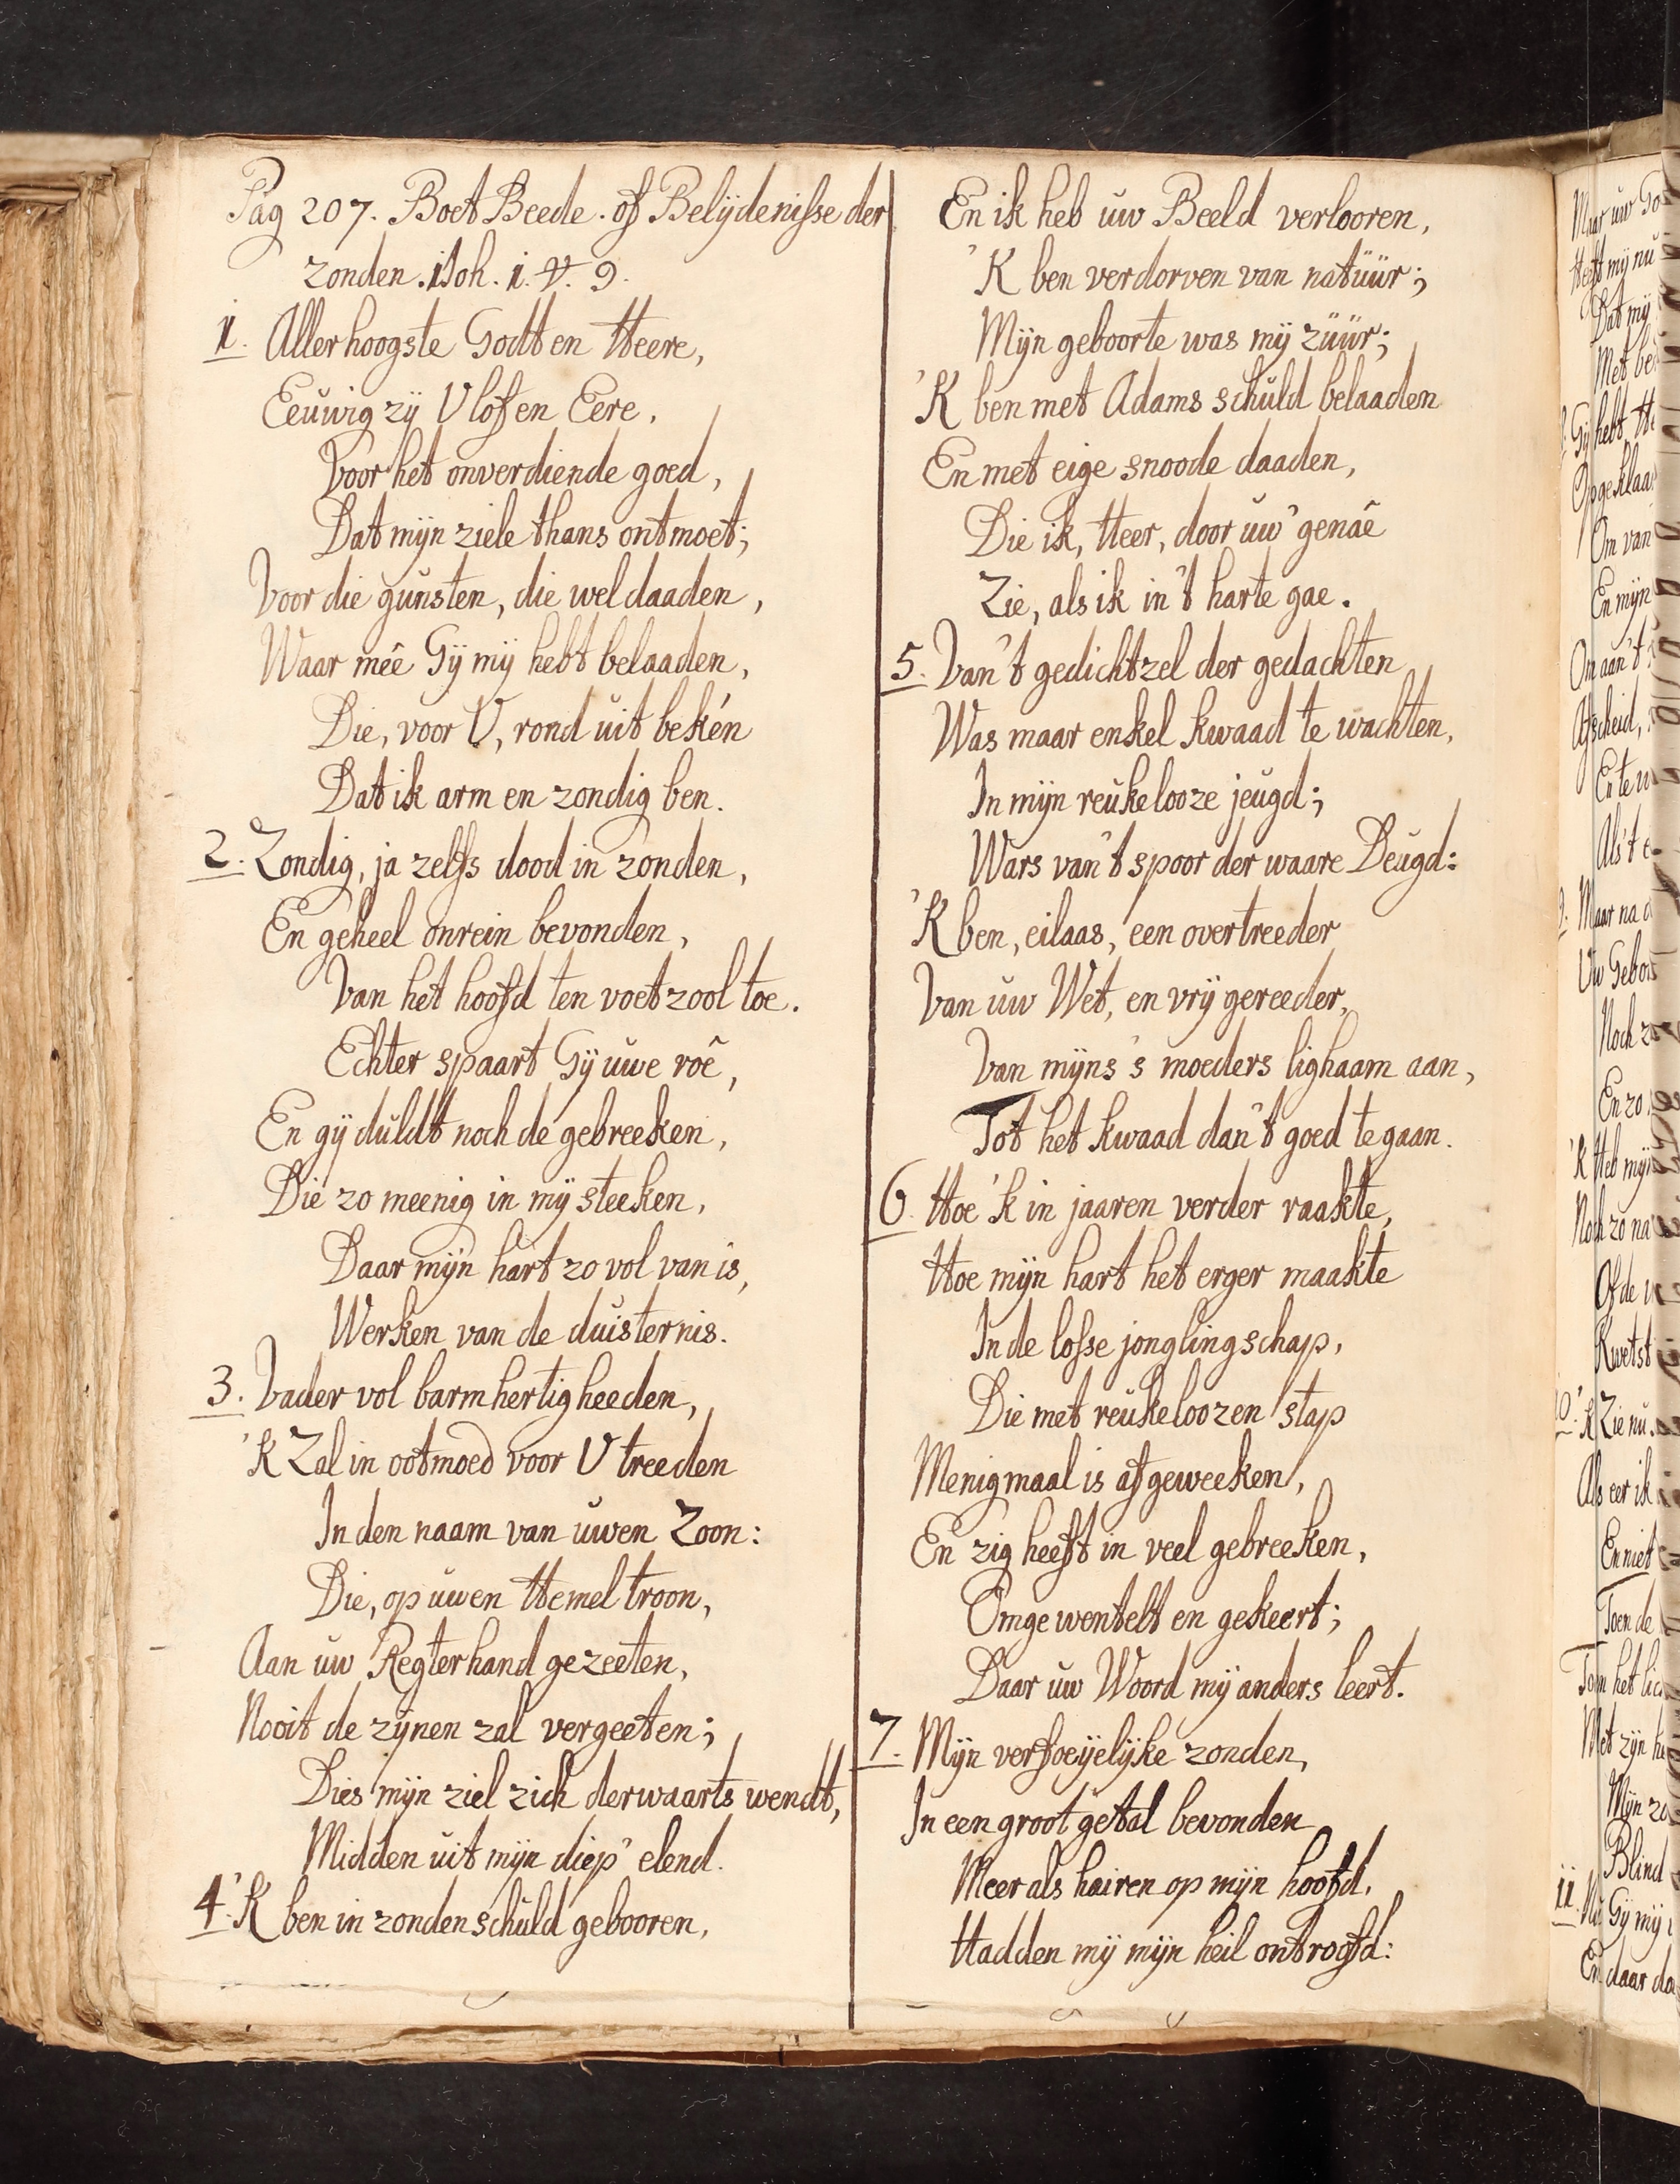 Pag 207. Boet Beede. of Belijdenisse der
zonden. 1 Joh. 1. V. 9.
1. Allerhoogste Godt en Heere,
Eeuwig zij U lof en Eere,
Voor het onverdiende goed,
Dat mijn ziele thans ontmoet;
Voor die gunsten, die weldaaden,
Waar meê Gij mij hebt belaaden,
Die, voor U, rond uit bekén
Dat ik arm en zondig ben.
2. Zondig, ja zelfs dood in zonden,
En geheel onrein bevonden,
Van het hoofd ten voetzool toe.
Echter spaart Gij uwe roê,
En gij duldt noch de gebreeken,
Die zo meenig in mij steeken,
Daar mijn hart zo vol van is,
Werken van de duisternis.
3. Vader vol barmhertigheeden,
'K Zal in ootmoed voor U treeden
In den naam van uwen Zoon:
Die, op uwen Hemel troon,
Aan uw Regterhand gezeeten,
Nooit de zijnen zal vergeeten;
Dies mijn ziel zich derwaarts wendt,
Midden uit mijn diep' elend.
4. 'K ben in zonden schuld gebooren,
En ik heb uw Beeld verlooren,
'K ben verdorven van natüür;
Mijn geboorte was mij züür;
'K ben met Adams schuld belaaden
En met eige snoode daaden,
Die ik, Heer, door uw' genaê
Zie, als ik in 't harte gae.
5. Van 't gedichtzel der gedachten
Was maar enkel kwaad te wachten,
In mijn reukelooze jeugd;
Wars van 't spoor der waare Deugd:
'K ben, eilaas, een overtreeder
Van uw Wet, en vrij gereeder,
Van mijns 's moeders lighaam aan,
Tot het kwaad dan 't goed te gaan.
6. Hoe 'k in jaaren verder raakte,
Hoe mijn hart het erger maakte
In de losse jonglingschap,
Die met reukeloozen stap
Menigmaal is afgeweeken,
En zig heeft in veel gebreeken,
Omgewentelt en gekeert;
Daar uw Woord mij anders leert.
7. Mijn verfoeijelijke zonden,
In een groot getal bevonden
Meer als hairen op mijn hoofd,
Hadden mij mijn heil ontroofd: